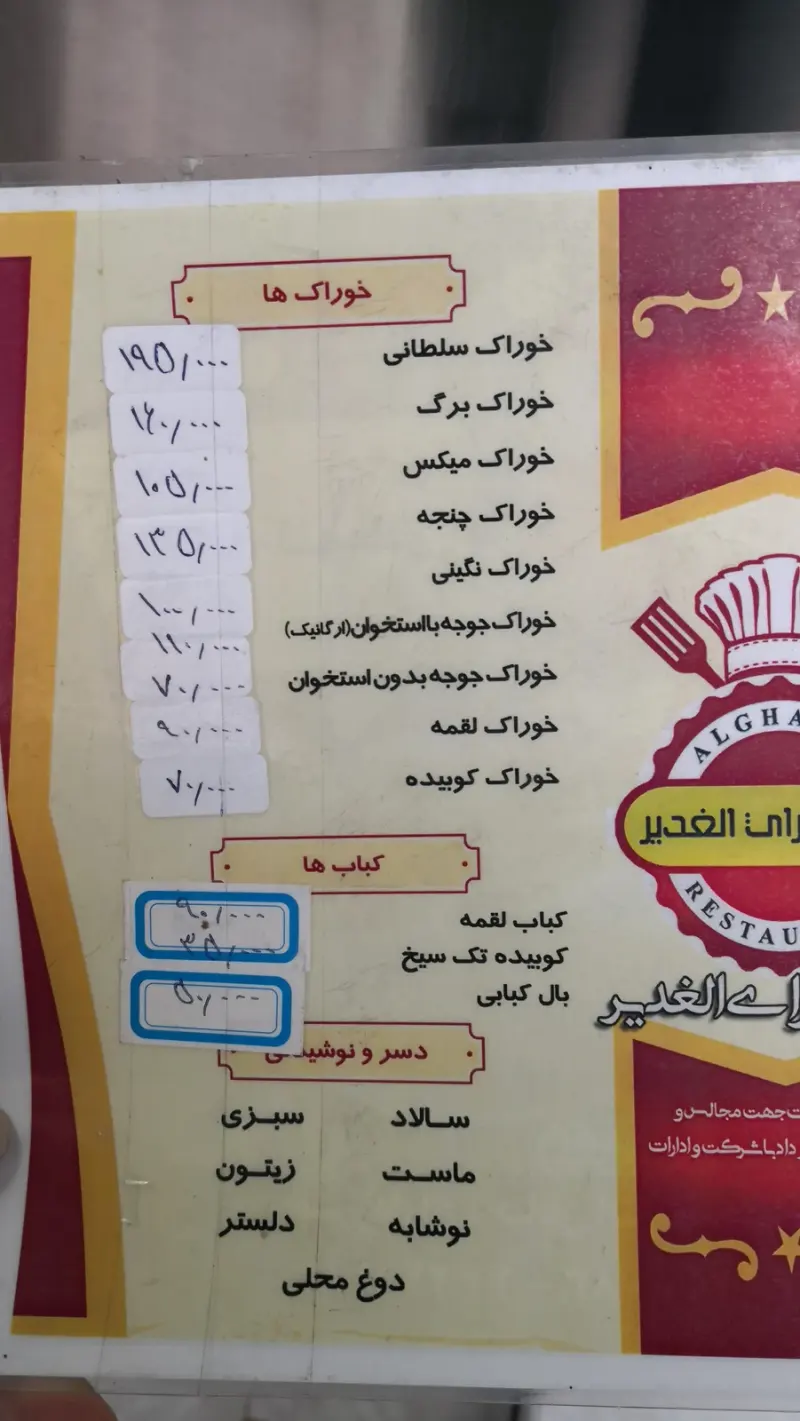 خوراک ها
خوراک سلطانی ۱۹۵/۰۰۰
خوراک برگ ۱۶۰/۰۰۰
خوراک میکس ۱۰۵/۰۰۰
خوراک چنجه ۱۳۵/۰۰۰
خوراک نگینی ۱۰۰/۰۰۰
خوراک جوجه با استخوان (ارگانیک) ۱۱۰/۰۰۰
خوراک جوجه بدون استخوان ۷۰/۰۰۰
خوراک لقمه ۹۰/۰۰۰
خوراک کوبیده ۷۰/۰۰۰
کباب ها
کباب لقمه ۹۰/۰۰۰
کوبیده تک سیخ ۳۵/۰۰۰
بال کبابی ۵۰/۰۰۰
دسر و نوشیدنی
سالاد سبزی
ماست زیتون
نوشابه دلستر
دوغ محلی
ALGHA
الغدیر
RESTAU
الغدیر
جهت مجالس و
با شرکت و ادارات